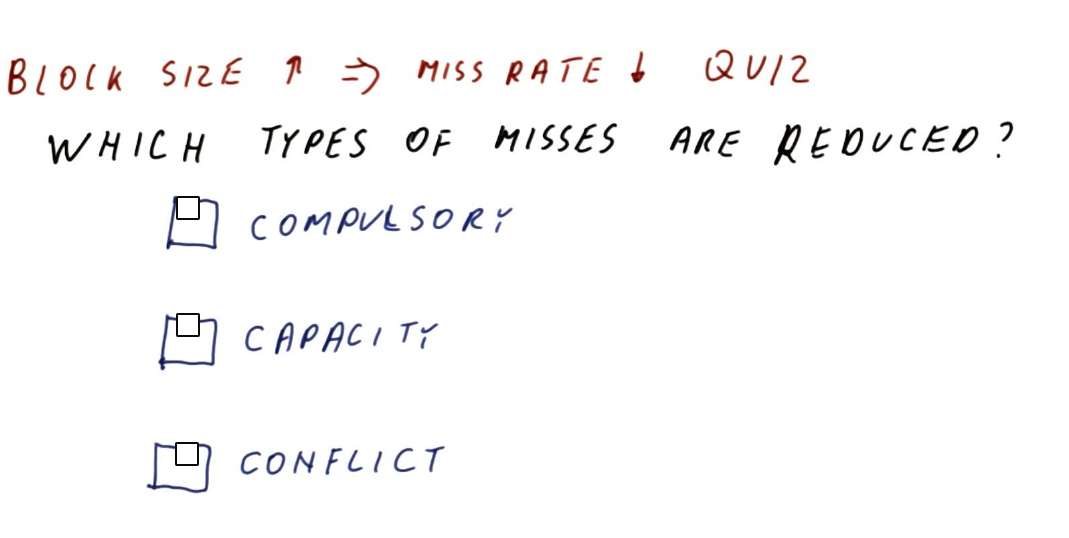 BLOCK SIZE ↑ ⇒ MISS RATE ↓ QUIZ
WHICH TYPES OF MISSES ARE REDUCED?
COMPULSORY
CAPACITY
CONFLICT